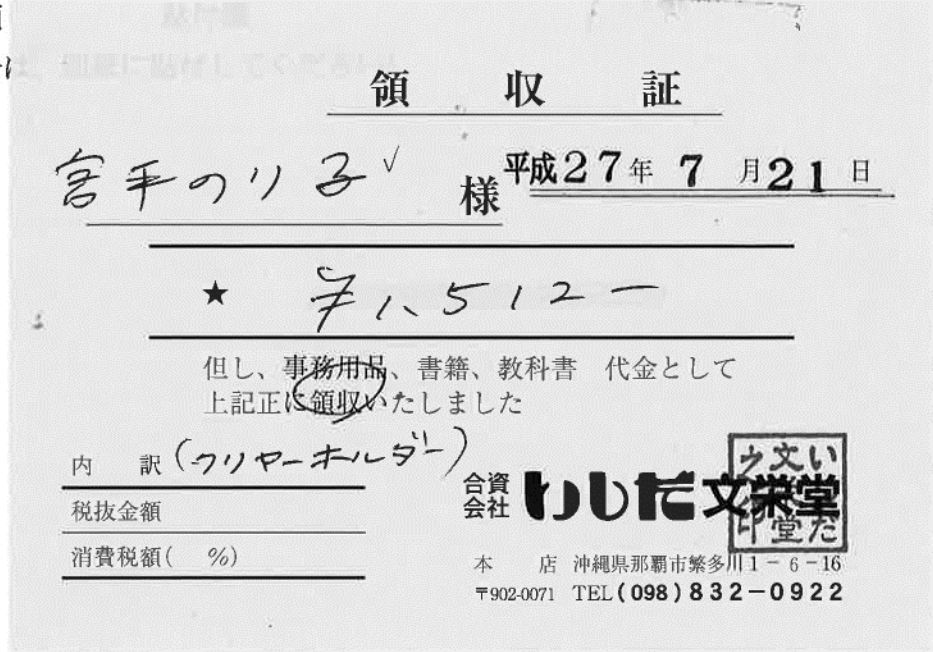 領 収 証
宮平のり子✓ 様 平成27年 7 月21日
★ ¥1,512ー
但し、事務用品、書籍、教科書 代金として
上記正に領収いたしました
内 訳 (クリヤーホルダー)
税抜金額
消費税額( %)
合資会社 いしだ文栄堂
本 店 沖縄県那覇市繁多川1-6-16
〒902-0071 TEL(098)832-0922